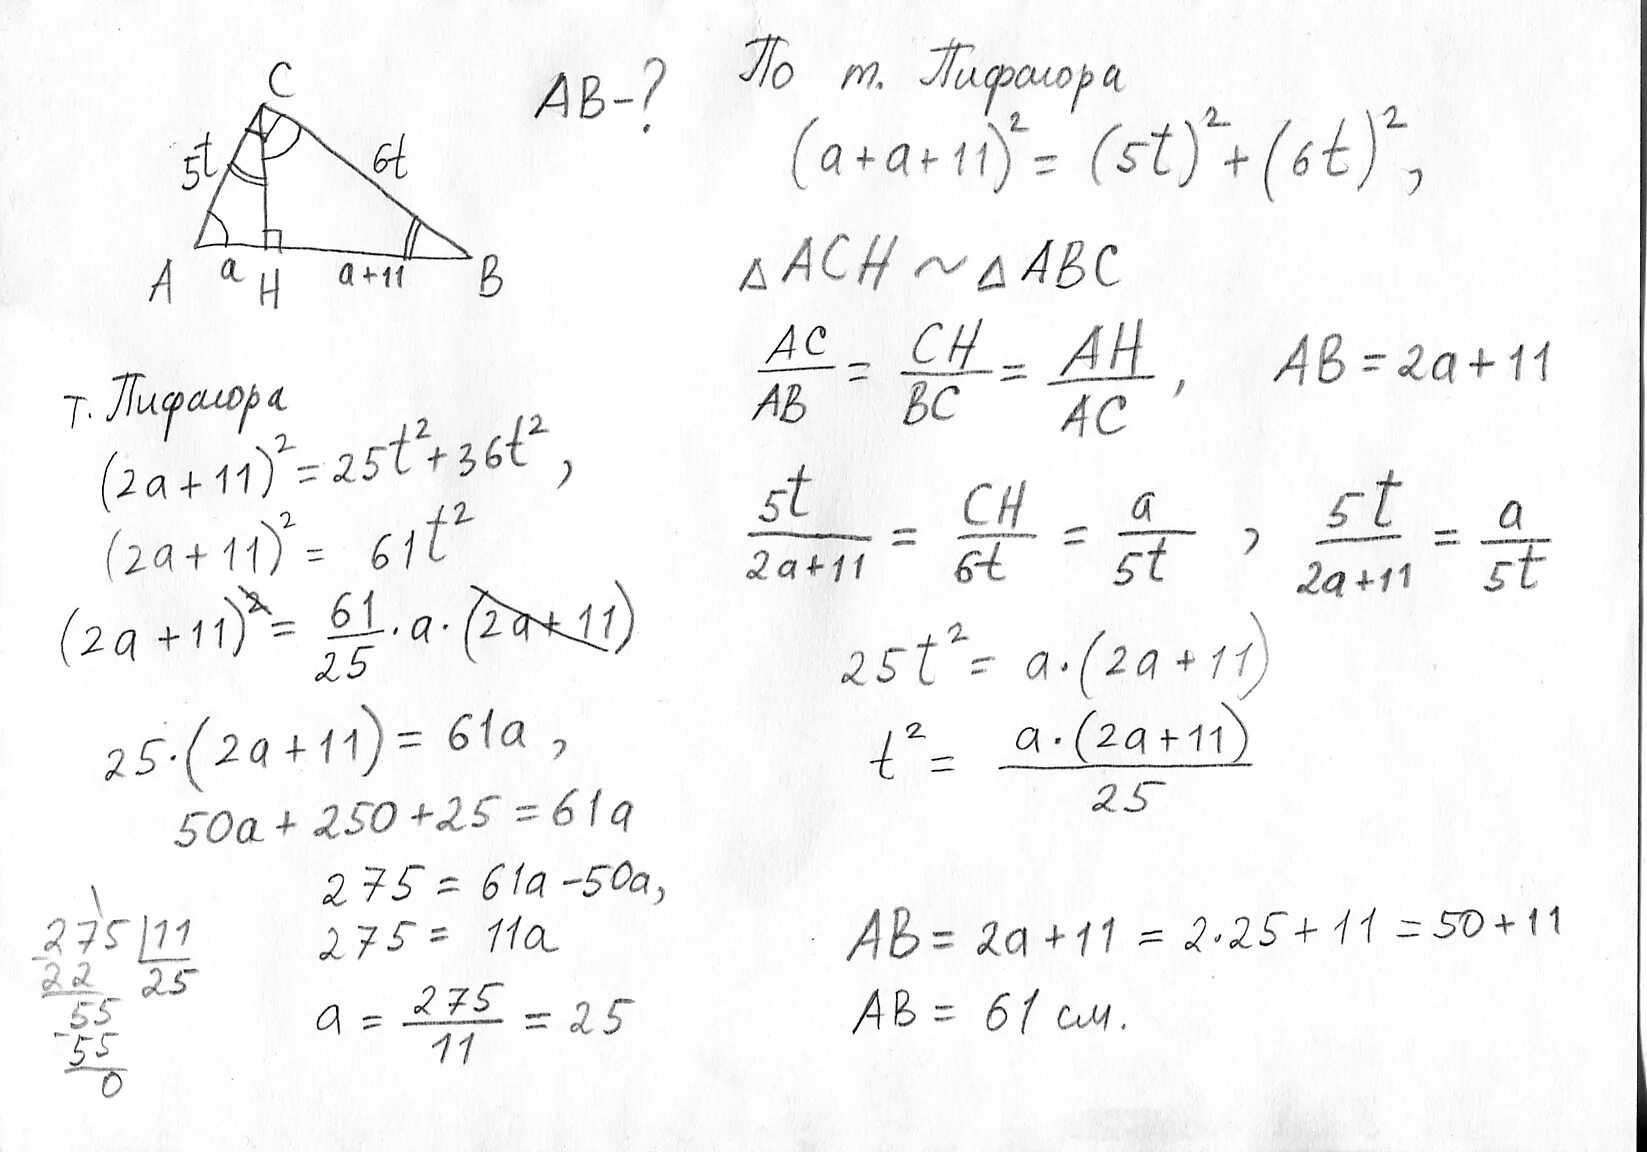 C
5t
6t
A
a
H
a+11
B
AB-?
По т. Пифагора
(a+a+11)² = (5t)² + (6t)²,
△ACH ~ △ABC
AC/AB = CH/BC = AH/AC, AB = 2a+11
5t/2a+11 = CH/6t = a/5t , 5t/2a+11 = a/5t
25t² = a·(2a+11)
t² = a·(2a+11)/25
т. Пифагора
(2a+11)² = 25t²+36t²,
(2a+11)² = 61t²
(2a+11)² = 61/25 · a · (2a+11)
25·(2a+11) = 61a,
50a + 250 + 25 = 61a
275 = 61a - 50a,
275 = 11a
a = 275/11 = 25
275 | 11
22 25
55
- 55
0
AB = 2a+11 = 2·25+11 = 50+11
AB = 61 см.